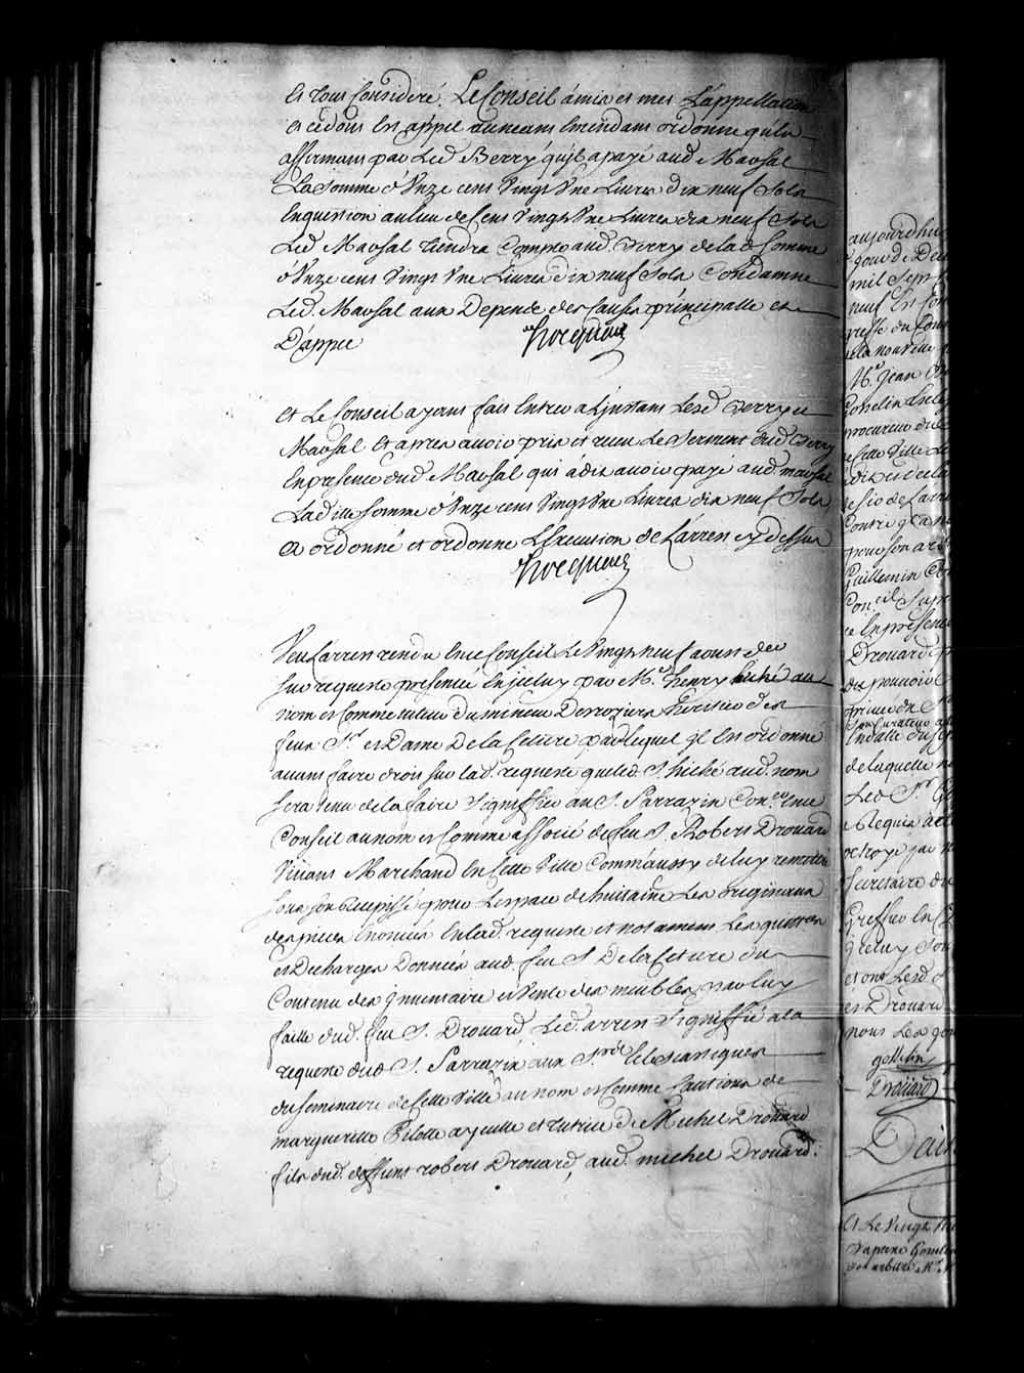 Et tout Consideré. Le Conseil à mis et met L'appellation
et ce dont Est appel au neant Emendant ordonne qu'En
affirmant par Led Berry qu'il a payé aud Marsal
La somme d'Onze cens Vingt Une Livres dix neuf Sols
En question au lieu de Cens Vingt Une Livres dix neuf Sols
Led Marsal tiendra Compte aud. Berry de lad Somme
d'Onze cens Vingt Une Livres dix neuf Sols Condamne
Led. Marsal aux Depens des causes principalle et
D'appel
Hocquart
Et Le Conseil ayant fait Entrer a L'instant Lesd Berry et
Marsal Et apres avoir pris et receu Le Serment dud Berry
En presence dud Marsal qui à dit avoir payé aud marsal
Lad. somme d'Onze cens Vingt Une Livres dix neuf Sols
a ordonné et ordonne L'Execution de L'arrest cy dessus
Hocquart
Veu L'arrest rendu En ce Conseil Le Vingt neuf aoust der
sur requeste presentée En jceluy par Me. henry hiché au
nom et Comme tuteur du mineur Desroziers heritier des
feux Sr. et Dame De la Cetiere par lequel jl Est ordonné
avant faire droit sur lad. requeste que led. S. hiché aud. nom
sera tenu de la faire Signiffier au S. Sarrazin Coner. En ce
Conseil au nom et Comme associé de feu S. Robert Drouard
Vivant Marchand En cette Ville Comm'aussy de luy remettre
sous son Recepissé pour L'espace de huitaine Les originaux
des pieces Enoncées En lad. requeste et notament Les quittances
et Decharges Données aud. feu S. De la Cetiere du
Contenu des jnventaire et Vente des meubles par luy
faitte dud. feu S. Drouard, Led. arrest Signiffié a la
requeste dud S. Sarrazin aux Srs. Ecclesiastiques
du Seminaire de cette Ville au nom et Comme Cautions de
marguerite Pilotte ayeulle et tutrice de Michel Drouard
fils dud. deffunt robert Drouard, aud. michel Drouard.
aujourdhui
jour de Dec
mil Sept
neuf En
greffe du Con
de la nouvelle
Me. Jean

procureur
cette Ville

Contre

pour son ar
Guillemin Con
Conseil Sup
en presence
Drouard
du pouvoir

Son Curateur

de laquelle
Led Sr.
Requis acte
octroyé par
Secretaire du
Greffier En

et ont Lesd
et Drouard
nous
Drouard
Dain
Et Le Vingt